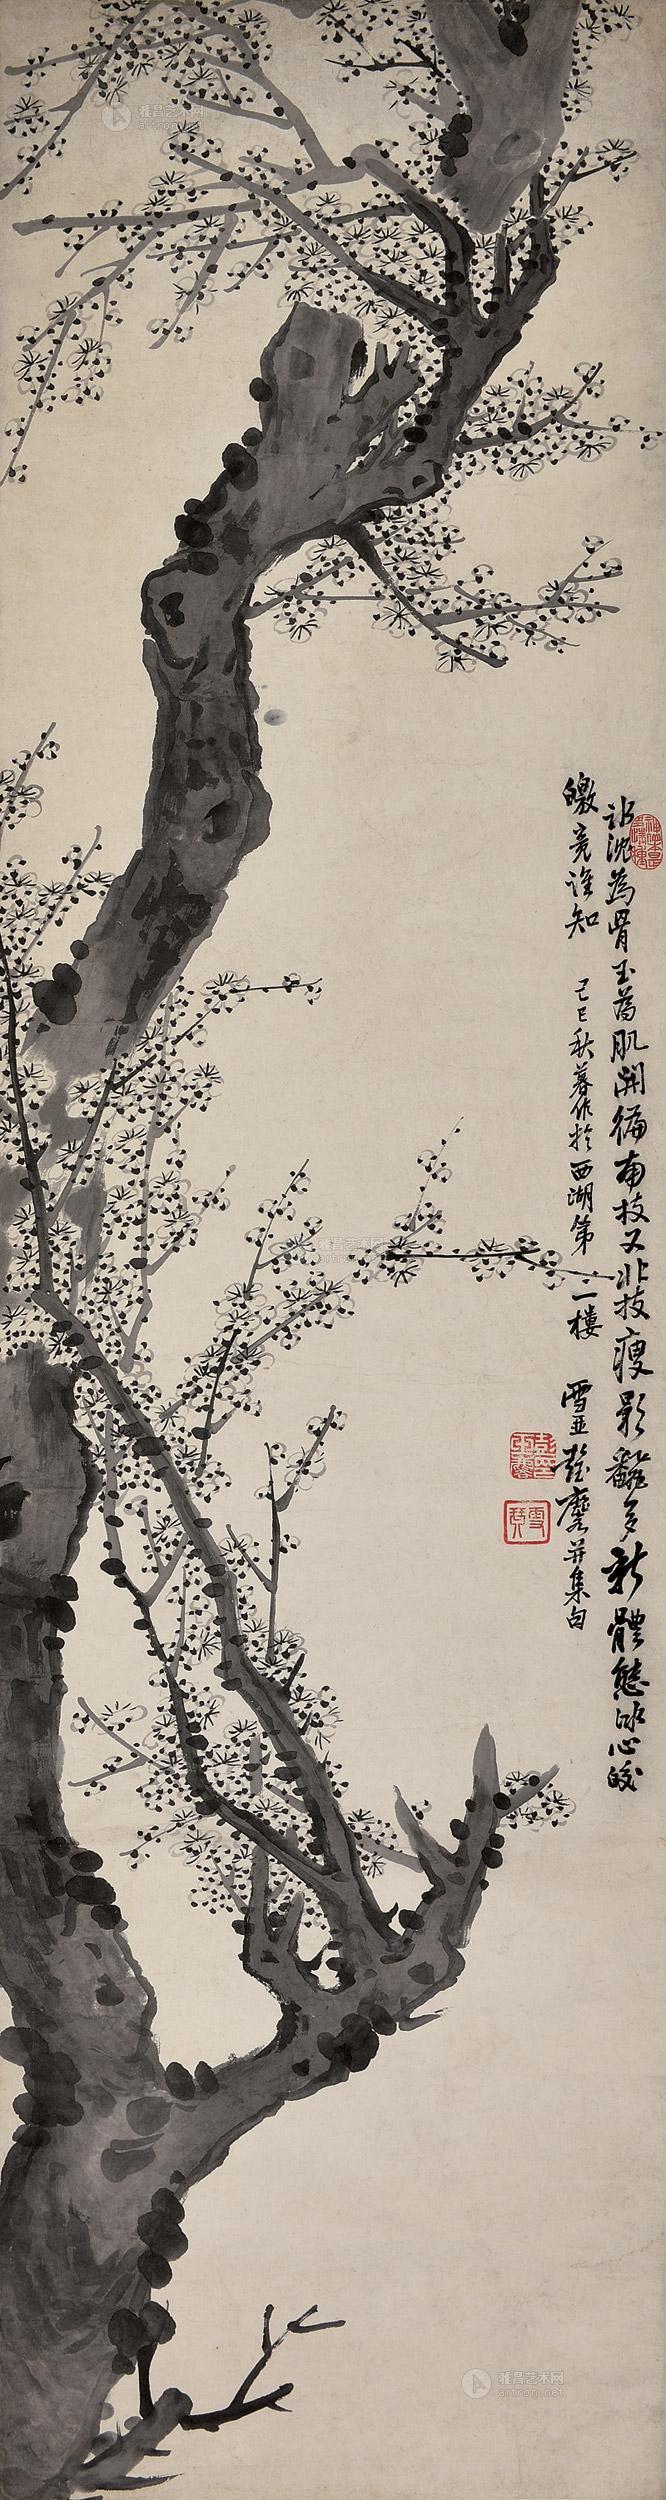 雅昌艺术网
artron.net
沈為骨玉為肌開徧南枝又北枝瘦影翻多新體態冰心皎
皦竟誰知 己巳秋暮作於西湖第一樓 雪 麐并集句
雪琴
雅昌艺术网
artron.net
雅昌艺术网
artron.net